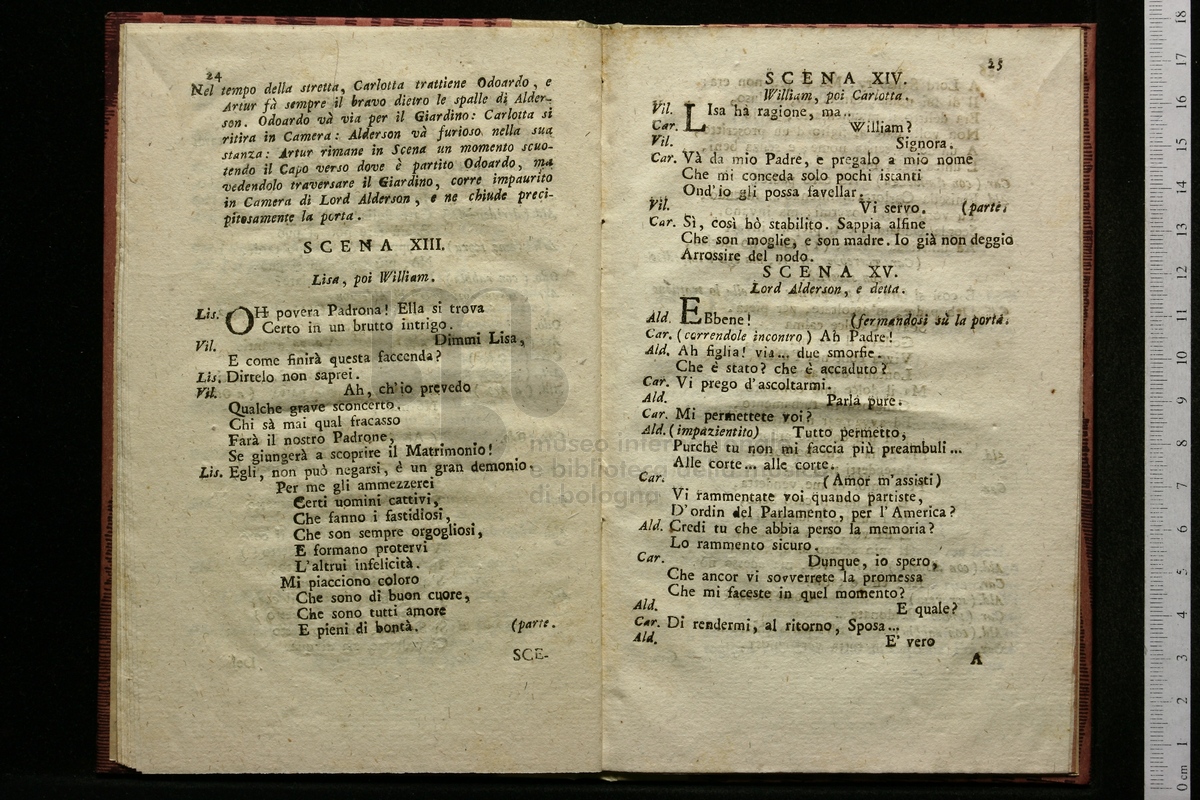 24
Nel tempo della stretta, Carlotta trattiene Odoardo, e
Artur fà sempre il bravo dietro le spalle di Alder-
son. Odoardo và via per il Giardino: Carlotta si
ritira in Camera: Alderson và furioso nella sua
stanza: Artur rimane in Scena un momento scuo-
tendo il Capo verso dove è partito Odoardo, ma
vedendolo traversare il Giardino, corre impaurito
in Camera di Lord Alderson, e ne chiude preci-
pitosamente la porta.
SCENA XIII.
Lisa, poi William.
Lis. OH povera Padrona! Ella si trova
Certo in un brutto intrigo.
Vil. Dimmi Lisa,
E come finirà questa faccenda?
Lis. Dirtelo non saprei.
Vil. Ah, ch'io prevedo
Qualche grave sconcerto.
Chi sà mai qual fracasso
Farà il nostro Padrone,
Se giungerà a scoprire il Matrimonio!
Lis. Egli, non può negarsi, è un gran demonio.
Per me gli ammezzerei
Certi uomini cattivi,
Che fanno i fastidiosi,
Che son sempre orgogliosi,
E formano protervi
L'altrui infelicità.
Mi piacciono coloro
Che sono di buon cuore,
Che sono tutti amore
E pieni di bontà. (parte.
SCE-
25
SCENA XIV.
William, poi Carlotta.
Vil. LIsa hà ragione, ma..
Car. William?
Vil. Signora.
Car. Và da mio Padre, e pregalo a mio nome
Che mi conceda solo pochi istanti
Ond'io gli possa favellar.
Vil. Vi servo. (parte.
Car. Sì, così hò stabilito. Sappia alfine
Che son moglie, e son madre. Io già non deggio
Arrossire del nodo.
SCENA XV.
Lord Alderson, e detta.
Ald. EBbene! (fermandosi sù la porta.
Car. (correndole incontro) Ah Padre!
Ald. Ah figlia! via... due smorfie.
Che è stato? che è accaduto?
Car. Vi prego d'ascoltarmi.
Ald. Parla pure.
Car. Mi permettete voi?
Ald. (impazientito) Tutto permetto,
Purchè tu non mi faccia più preambuli...
Alle corte... alle corte.
Car. (Amor m'assisti)
Vi rammentate voi quando partiste,
D'ordin del Parlamento, per l'America?
Ald. Credi tu che abbia perso la memoria?
Lo rammento sicuro.
Car. Dunque, io spero,
Che ancor vi sovverrete la promessa
Che mi faceste in quel momento?
Ald. E quale?
Car. Di rendermi, al ritorno, Sposa...
Ald. E' vero
A
museo internazionale
e biblioteca della musica
di bologna
0 cm 1 2 3 4 5 6 7 8 9 10 11 12 13 14 15 16 17 18